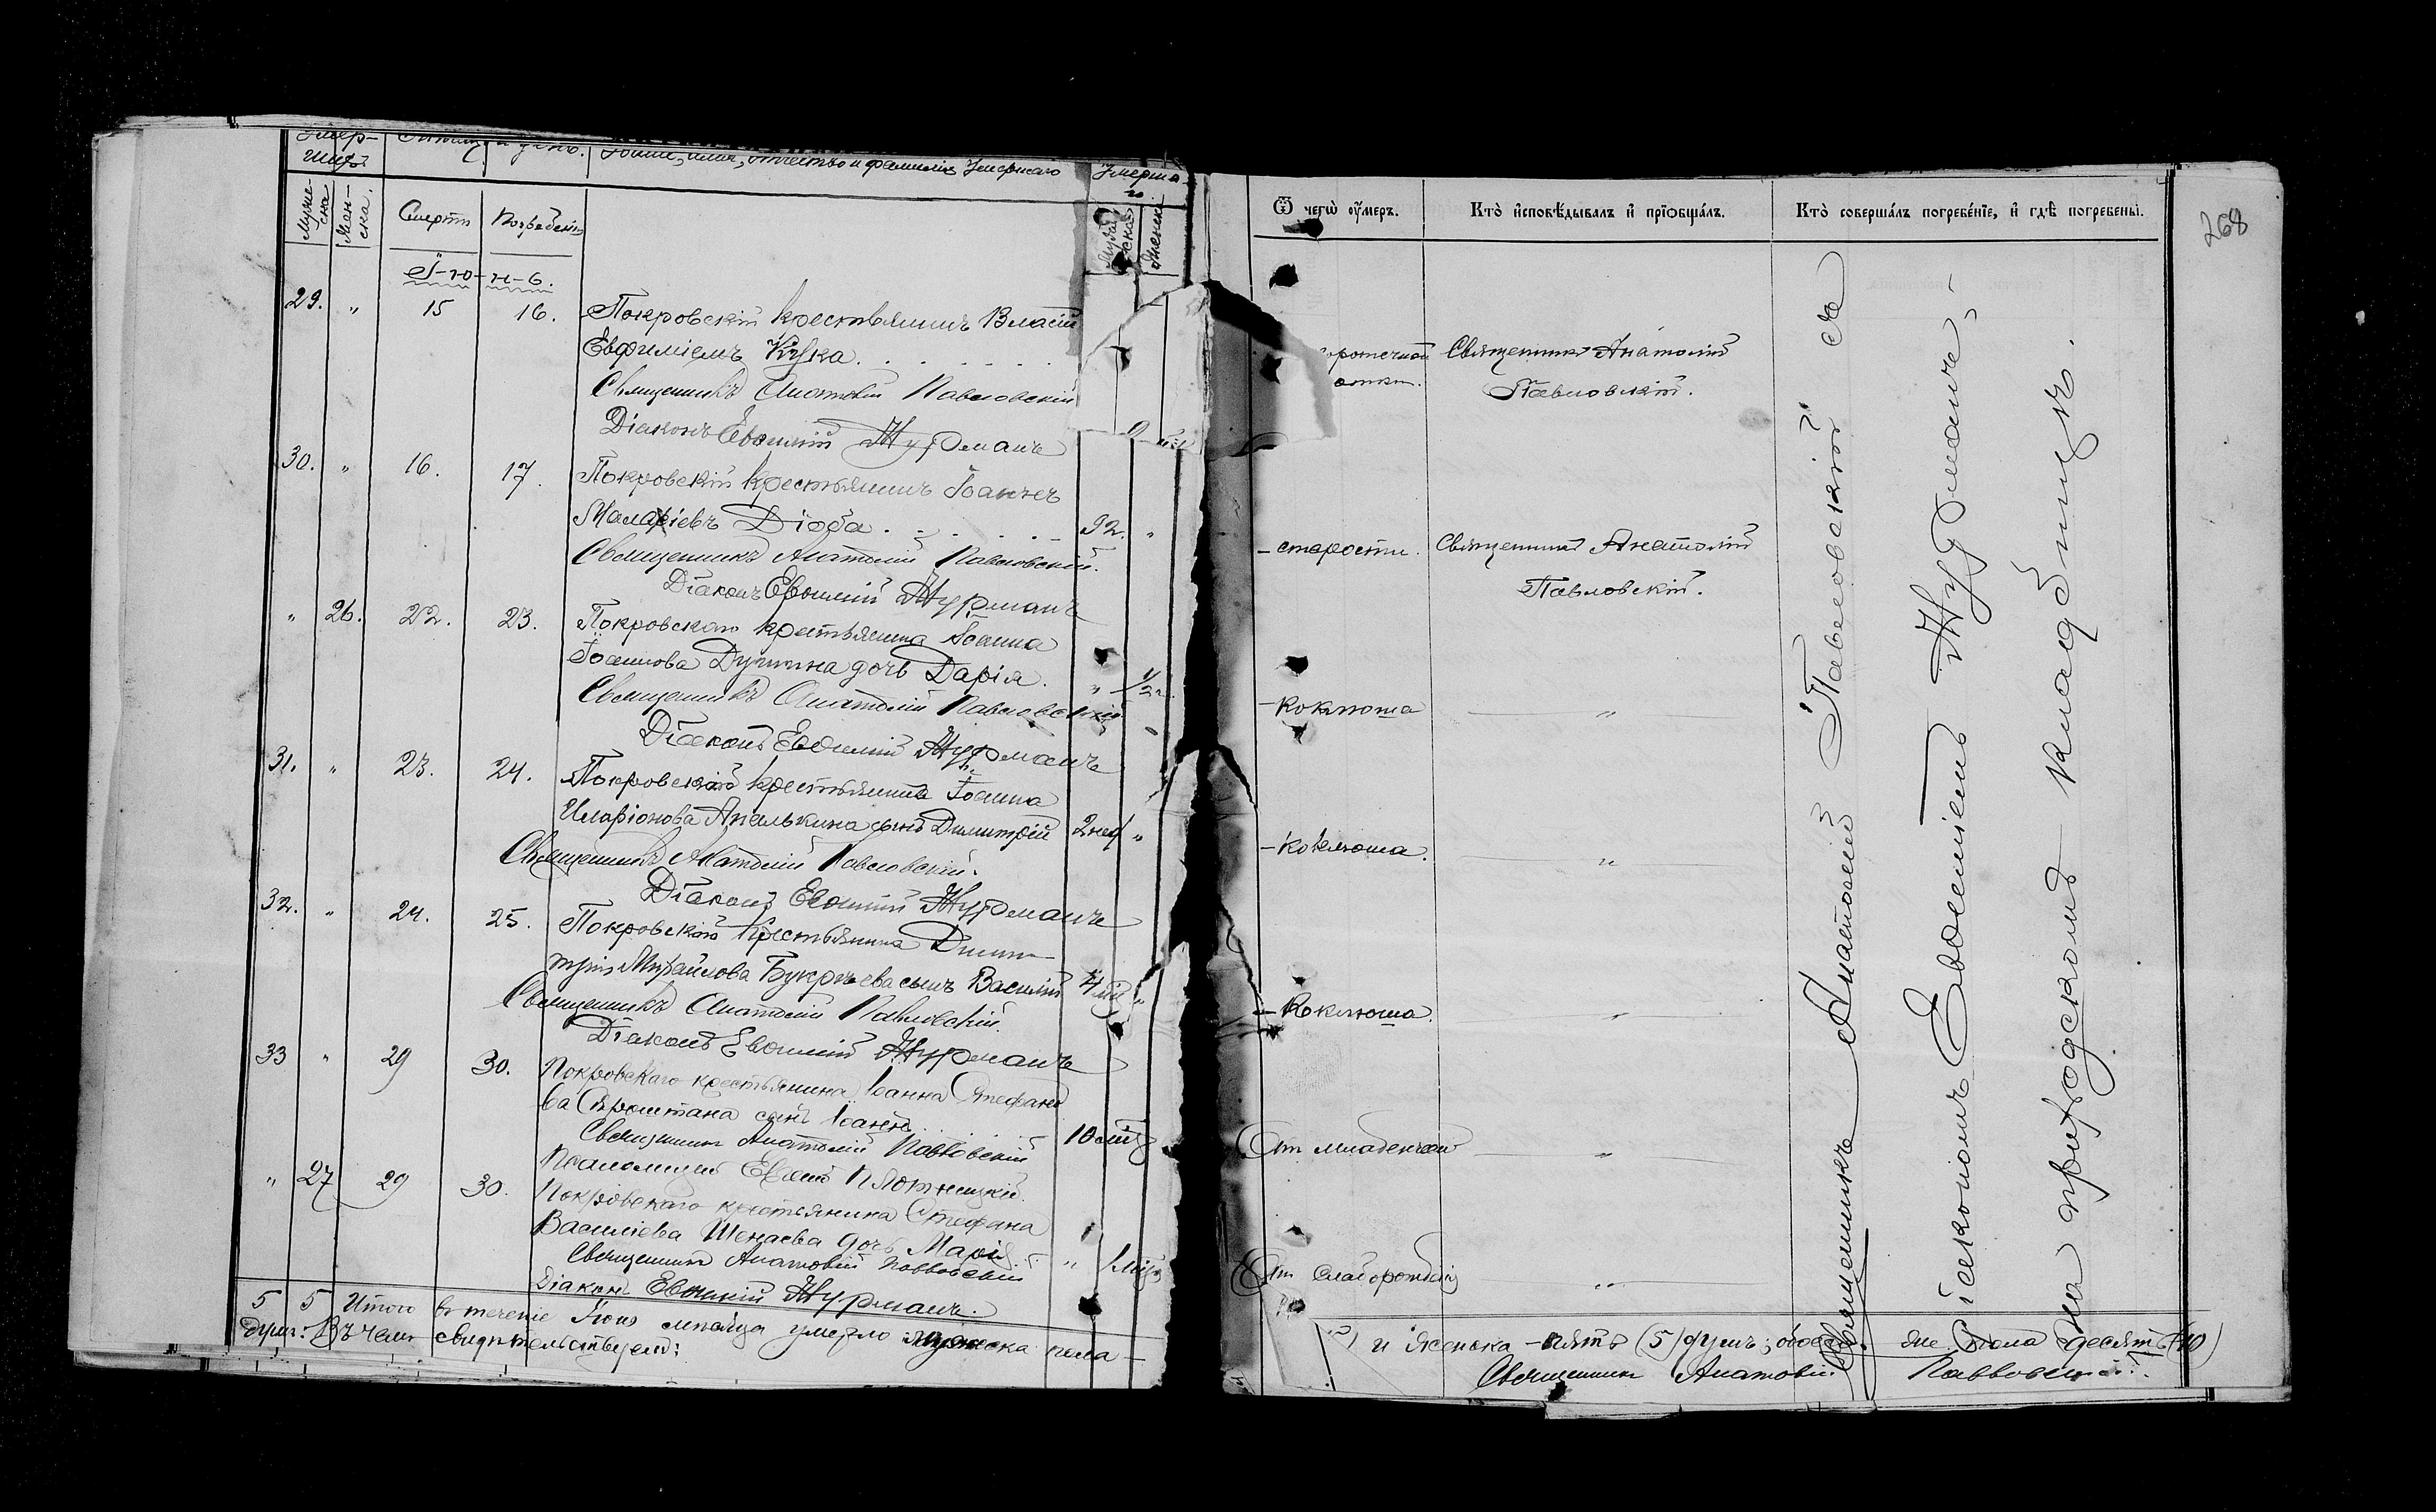 Умер-
шихъ
Мѣсяцъ и день.
Званіе, имя, отчество и фамилія умершаго
Умерша-
го.
Муже-
ска
Жен-
ска.
Смерти
Погребенія
Мужеска
Женска
І-ю-н-ь.
29. „ 15 16. Покровскій крестьянинъ Власій
Евфиміевъ Кука.
Священникъ Анатолій Павловскій
Діаконъ Евѳимій Журманъ
30. „ 16. 17. Покровскій крестьянинъ Іоаннъ
Діоба. 92. „
Священникъ Анатолій Павловскій.
Діаконъ Евѳимій Журманъ
„ 26. 22. 23. Покровскаго крестьянина Іоанна
Іоаннова Душина дочь Дарія. „ 1/2 г.
Священникъ Анатолій Павловскій
Діаконъ Евѳимій Журманъ
31. „ 23. 24. Покровскаго крестьянина Іоанна
Иларіонова Апалькина сынъ Димитрій 2 нед „
Священникъ Анатолій Павловскій.
Діаконъ Евѳимій Журманъ
32. „ 24. 25. Покровскаго крестьянина Дими-
трія Михайлова Букрѣева сынъ Василій 4 мѣ „
Священникъ Анатолій Павловскій.
Діаконъ Евѳимій Журманъ
33 „ 29 30. Покровскаго крестьянина Іоанна Стефано
ва сынъ Іоаннъ 10 мѣ
Священникъ Анатолій Павловскій
Псаломщикъ
„ 27 29 30. Покровскаго крестьянина Стефана
Василіева Шенаева дочь Марія „
Священникъ Анатолій Павловскій
Діаконъ Евѳимій Журманъ.
5 5 Итого въ теченіе Іюня мѣсяца умерло мужеска пола
душъ: Въ чемъ свидѣтельствуемъ:
Ѿ чегѡ оу҆меръ.
Кто̀ и҆сповѣ́дывалъ и҆ прїѻбща́лъ.
Кто̀ соверша́лъ погребе́нїе, и҆ гдѣ̀ погребены̀.
268
Священникъ Анатолій
Павловскій.
– старости. Священникъ Анатолій
Павловскій.
– коклюша „
– коклюша. „
– коклюша. „
От младенчес „
От „
Священникъ Анатолій Павловскій съ
Діакономъ Евѳиміемъ Журманъ,–
на приходскомъ кладбищѣ.
и женска – пять (5) душъ; обоего же пола десять (10)
Священникъ Анатолій Павловскій.